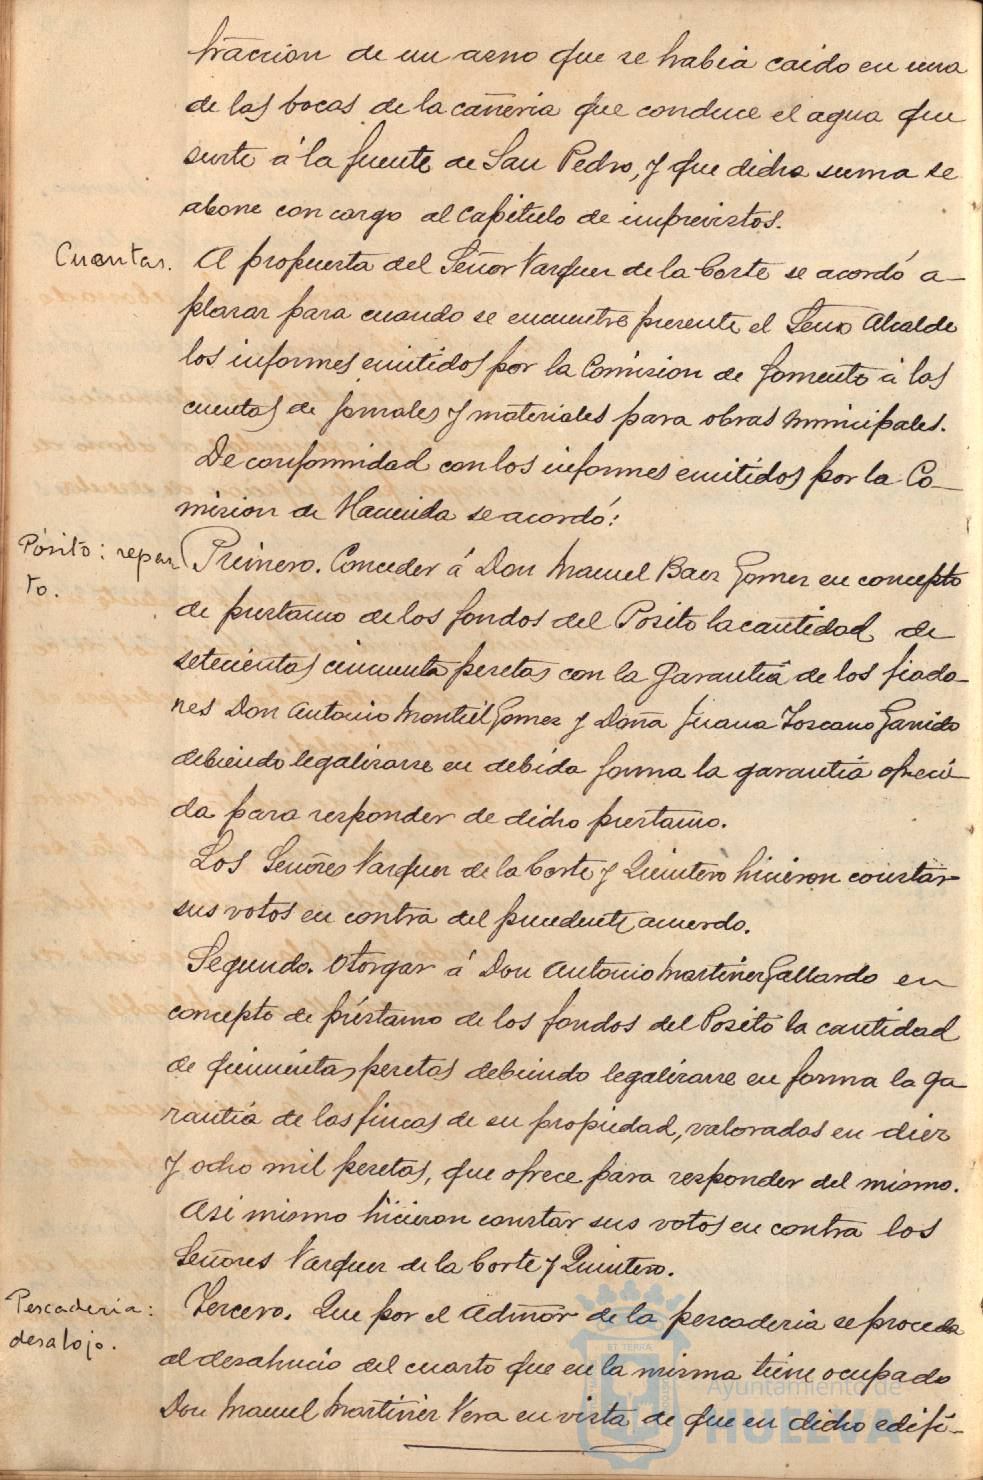 tracción de un asno que se habia caido en una
de las bocas de la cañeria que conduce el agua que
surte á la fuente de San Pedro, y que dicha suma se
abone con cargo al capitulo de imprevistos.
Cuentas. A propuesta del Señor Vazquez de la Corte se acordó a-
plazar para cuando se encuentre presente el Señor Alcalde
los informes emitidos por la Comision de Fomento á las
cuentas de jornales y materiales para obras municipales.
De conformidad con los informes emitidos por la Co-
mision de Hacienda se acordó:
Pósito: repar- Primero. Conceder á Don Manuel Baez Gomez en concepto
to. de prestamo de los fondos del Posito la cantidad de
setecientas cincuenta pesetas con la garantia de los fiado-
res Don Antonio Montiel Gomez y Doña Juana Toscano Garrido
debiendo legalizarse en debida forma la garantia ofreci-
da para responder de dicho prestamo.
Los Señores Vazquez de la Corte y Quintero hicieron constar
sus votos en contra del precedente acuerdo.
Segundo. Otorgar á Don Antonio Martinez Gallardo en
concepto de préstamo de los fondos del Posito la cantidad
de quinientas pesetas debiendo legalizarse en forma la ga-
rantia de las fincas de su propiedad, valoradas en diez
y ocho mil pesetas, que ofrece para responder del mismo.
Asi mismo hicieron constar sus votos en contra los
Señores Vazquez de la Corte y Quintero.
Pescaderia: Tercero. Que por el Admor de la pescaderia se proceda
desalojo. al desahucio del cuarto que en la misma tiene ocupado
Don Manuel Martinez Vera en vista de que en dicho edifi-
ET TERRA
Ayuntamiento de
HUELVA